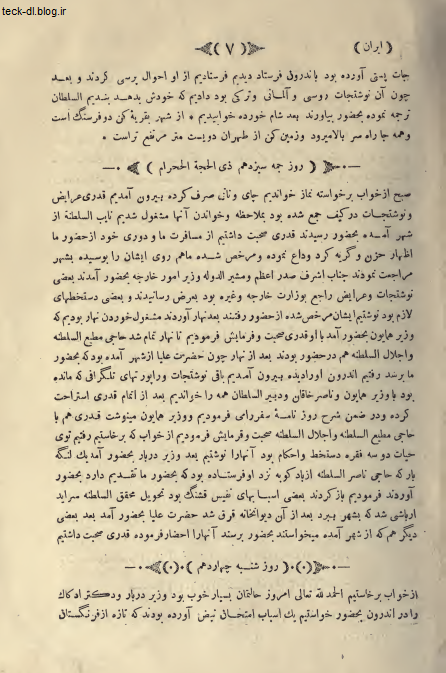 teck-dl.blog.ir
( ایران )
( ٧ )
جات پستی آورده بود باندرون فرستاد دیدیم فرستادیم از او احوال پرسی کردند و بعد
چون آن نوشتجات روسی و آلمانی و ترکی بود دادیم که خودش بدهد بندیم السلطان
ترجمه نموده بحضور بیاورند بعد شام خورده خوابیدیم * از شهر بقریهٔ کن دو فرسنگ است
وهمه جا راه سر بالا میرود و زمین کن از طهران دویست متر مرتفع تر است *
( روز جمعه سیزدهم ذی الحجة الحرام )
صبح از خواب برخواسته نماز خواندیم چای و نانی صرف کرده بیرون آمدیم قدری عرایض
ونوشتجات در کیف جمع شده بود بملاحظه وخواندن آنها مشغول شدیم نایب السلطنه از
شهر آمده بحضور رسیدند قدری صحبت داشتیم از مسافرت ما و دوری خود از حضور ما
اظهار حزن و گریه کرد وداع نموده و مرخص شده ماهم روی ایشان را بوسیده بشهر
مراجعت نمودند جناب اشرف صدر اعظم ومشیر الدوله وزیر امور خارجه بحضور آمدند بعضی
نوشتجات وعرایض راجع بوزارت خارجه وغیره بود بعرض رسانیدند و بعضی دستخطهای
لازم بود نوشتیم ایشان مرخص شده از حضور رفتند بعد نهار آوردند مشغول خوردن نهار بودیم که
وزیر همایون بحضور آمد با او قدری صحبت و فرمایش فرمودیم تا نهار تمام شد حاجی مطیع السلطنه
واجلال السلطنه هم در حضور بودند بعد از نهار چون حضرت علیا از شهر آمده بود که بحضور
ما برسد رفتیم اندرون اورا دیده بیرون آمدیم باقی نوشتجات وراپورتهای تلگرافی که مانده
بود با وزیر همایون و ناصر خاقان ودبیر السلطان همه را خواندیم بعد از اتمام قدری استراحت
کرده ودر ضمن شرح روز نامهٔ سفررا می فرمودیم و وزیر همایون مینوشت قدری هم با
حاجی مطیع السلطنه واجلال السلطنه صحبت وفرمایش فرمودیم از خواب که برخاستیم رفتیم توی
حیات دو سه فقره دستخط واحکام بود آنهارا نوشتیم بعد وزیر دربار بحضور آمد یك لنگه
بار که حاجی ناصر السلطنه از بادکوبه نزد او فرستاده بود که بحضور ما تقدیم دارد بحضور
آوردند فرمودیم باز کردند بعضی اسبابهای نفیس قشنگ بود تحویل محقق السلطنه سراید
ارباشی شد که بشهر ببرد بعد از آن دیوانخانه قرق شد حضرت علیا بحضور آمد بعد بعضی
دیگر هم که از شهر آمده میخواستند بحضور برسند آنهارا احضار فرموده قدری صحبت داشتیم
( روز شنبه چهاردهم )
از خواب برخاستیم الحمد لله تعالی امروز حالتمان بسیار خوب بود وزیر دربار ودکتر ادکاك
را در اندرون بحضور خواستیم یك اسباب امتحان نبض آورده بودند که تازه از فرنگستان